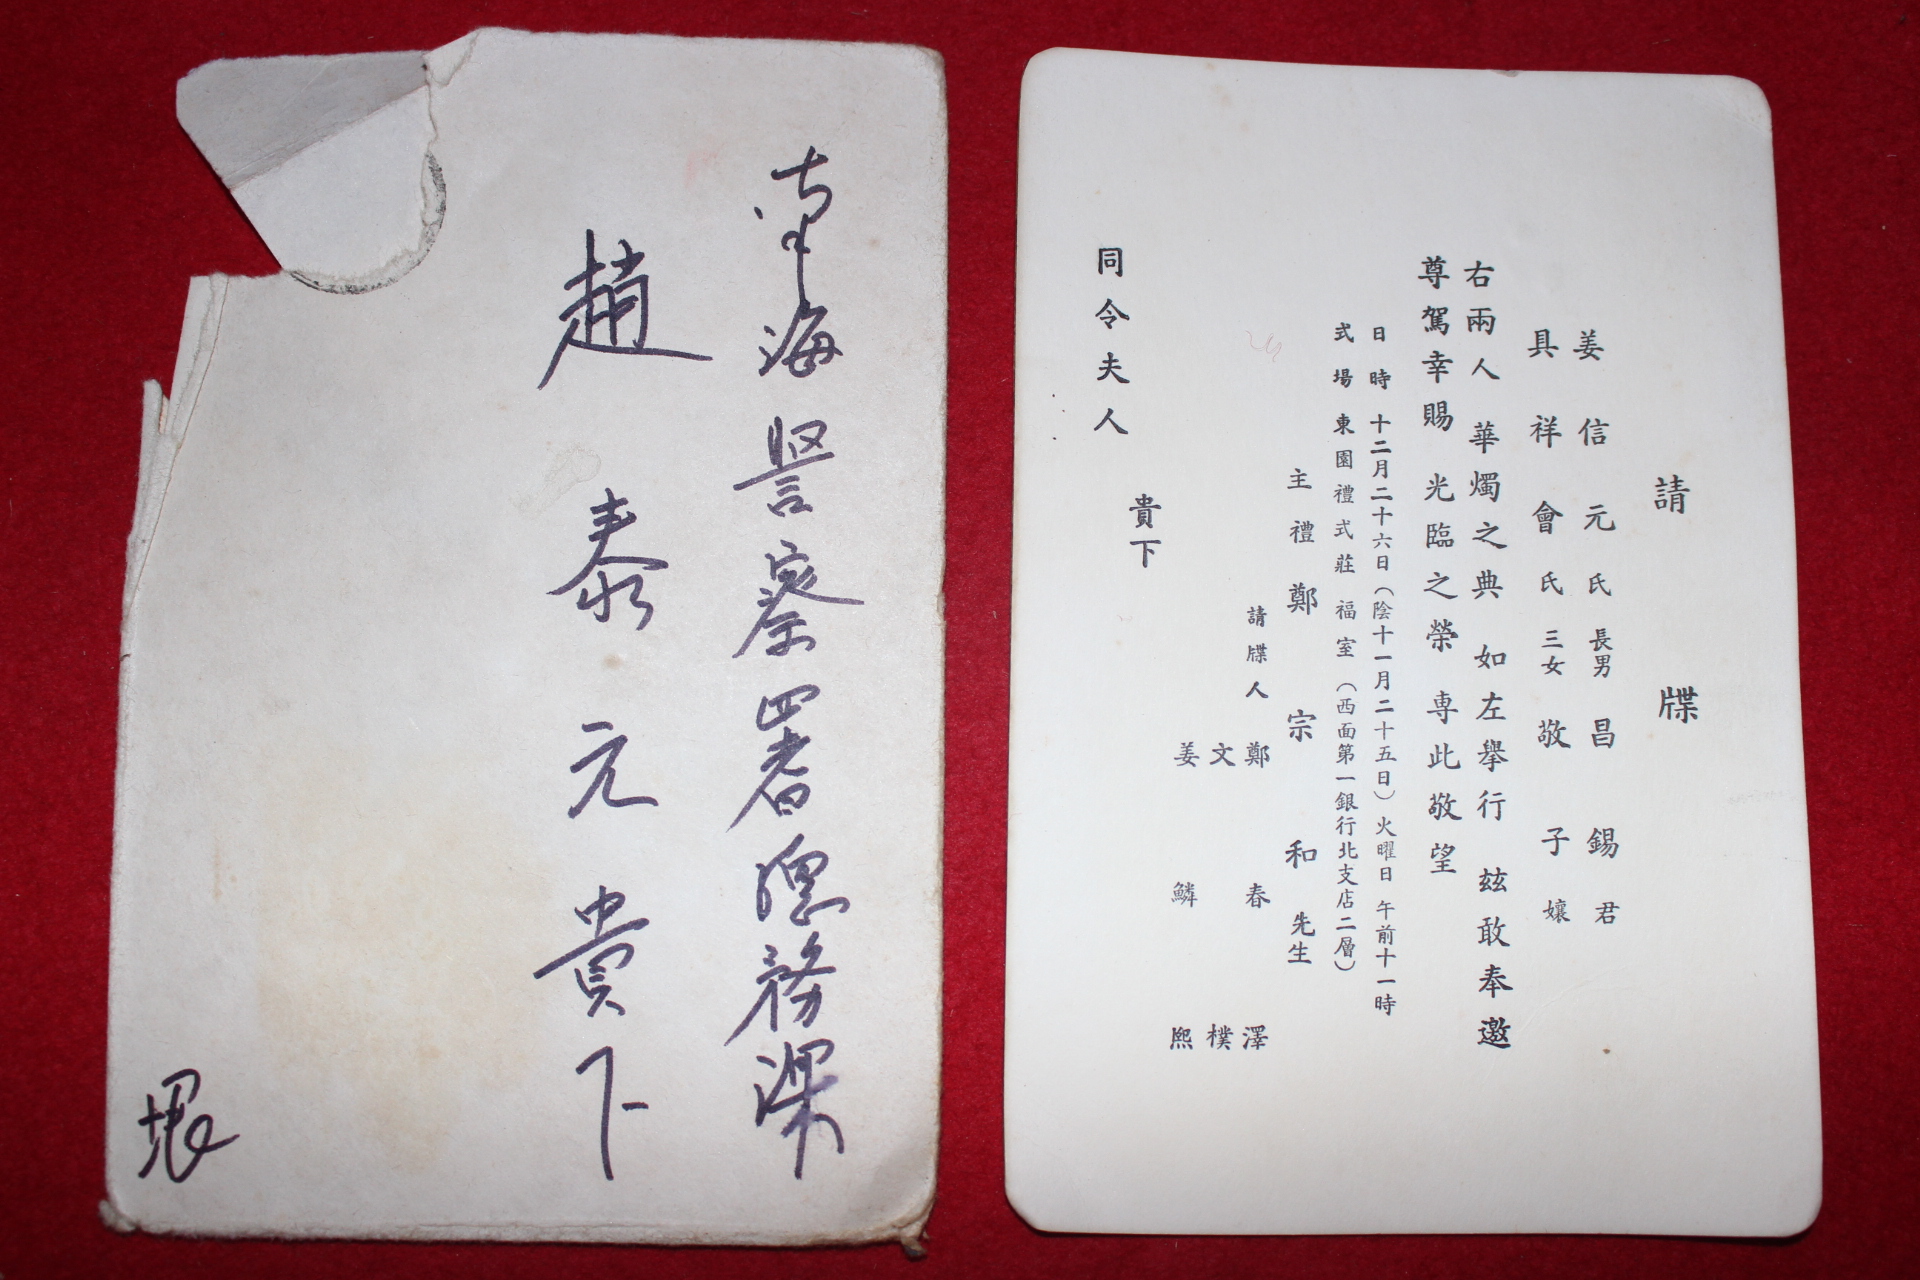 南海警察署總務課
趙泰元貴下
請牒
姜信元氏長男昌錫君
具祥會氏三女敬子孃
右兩人 華燭之典 如左擧行 玆敢奉邀
尊駕幸賜 光臨之榮 專此敬望
日時 十二月二十六日(陰十一月二十五日)火曜日 午前十一時
式場 東園禮式莊 福室(西面第一銀行北支店二層)
主禮 鄭宗和 先生
請牒人 鄭春澤
文樸
姜鱗熙
貴下
同令夫人